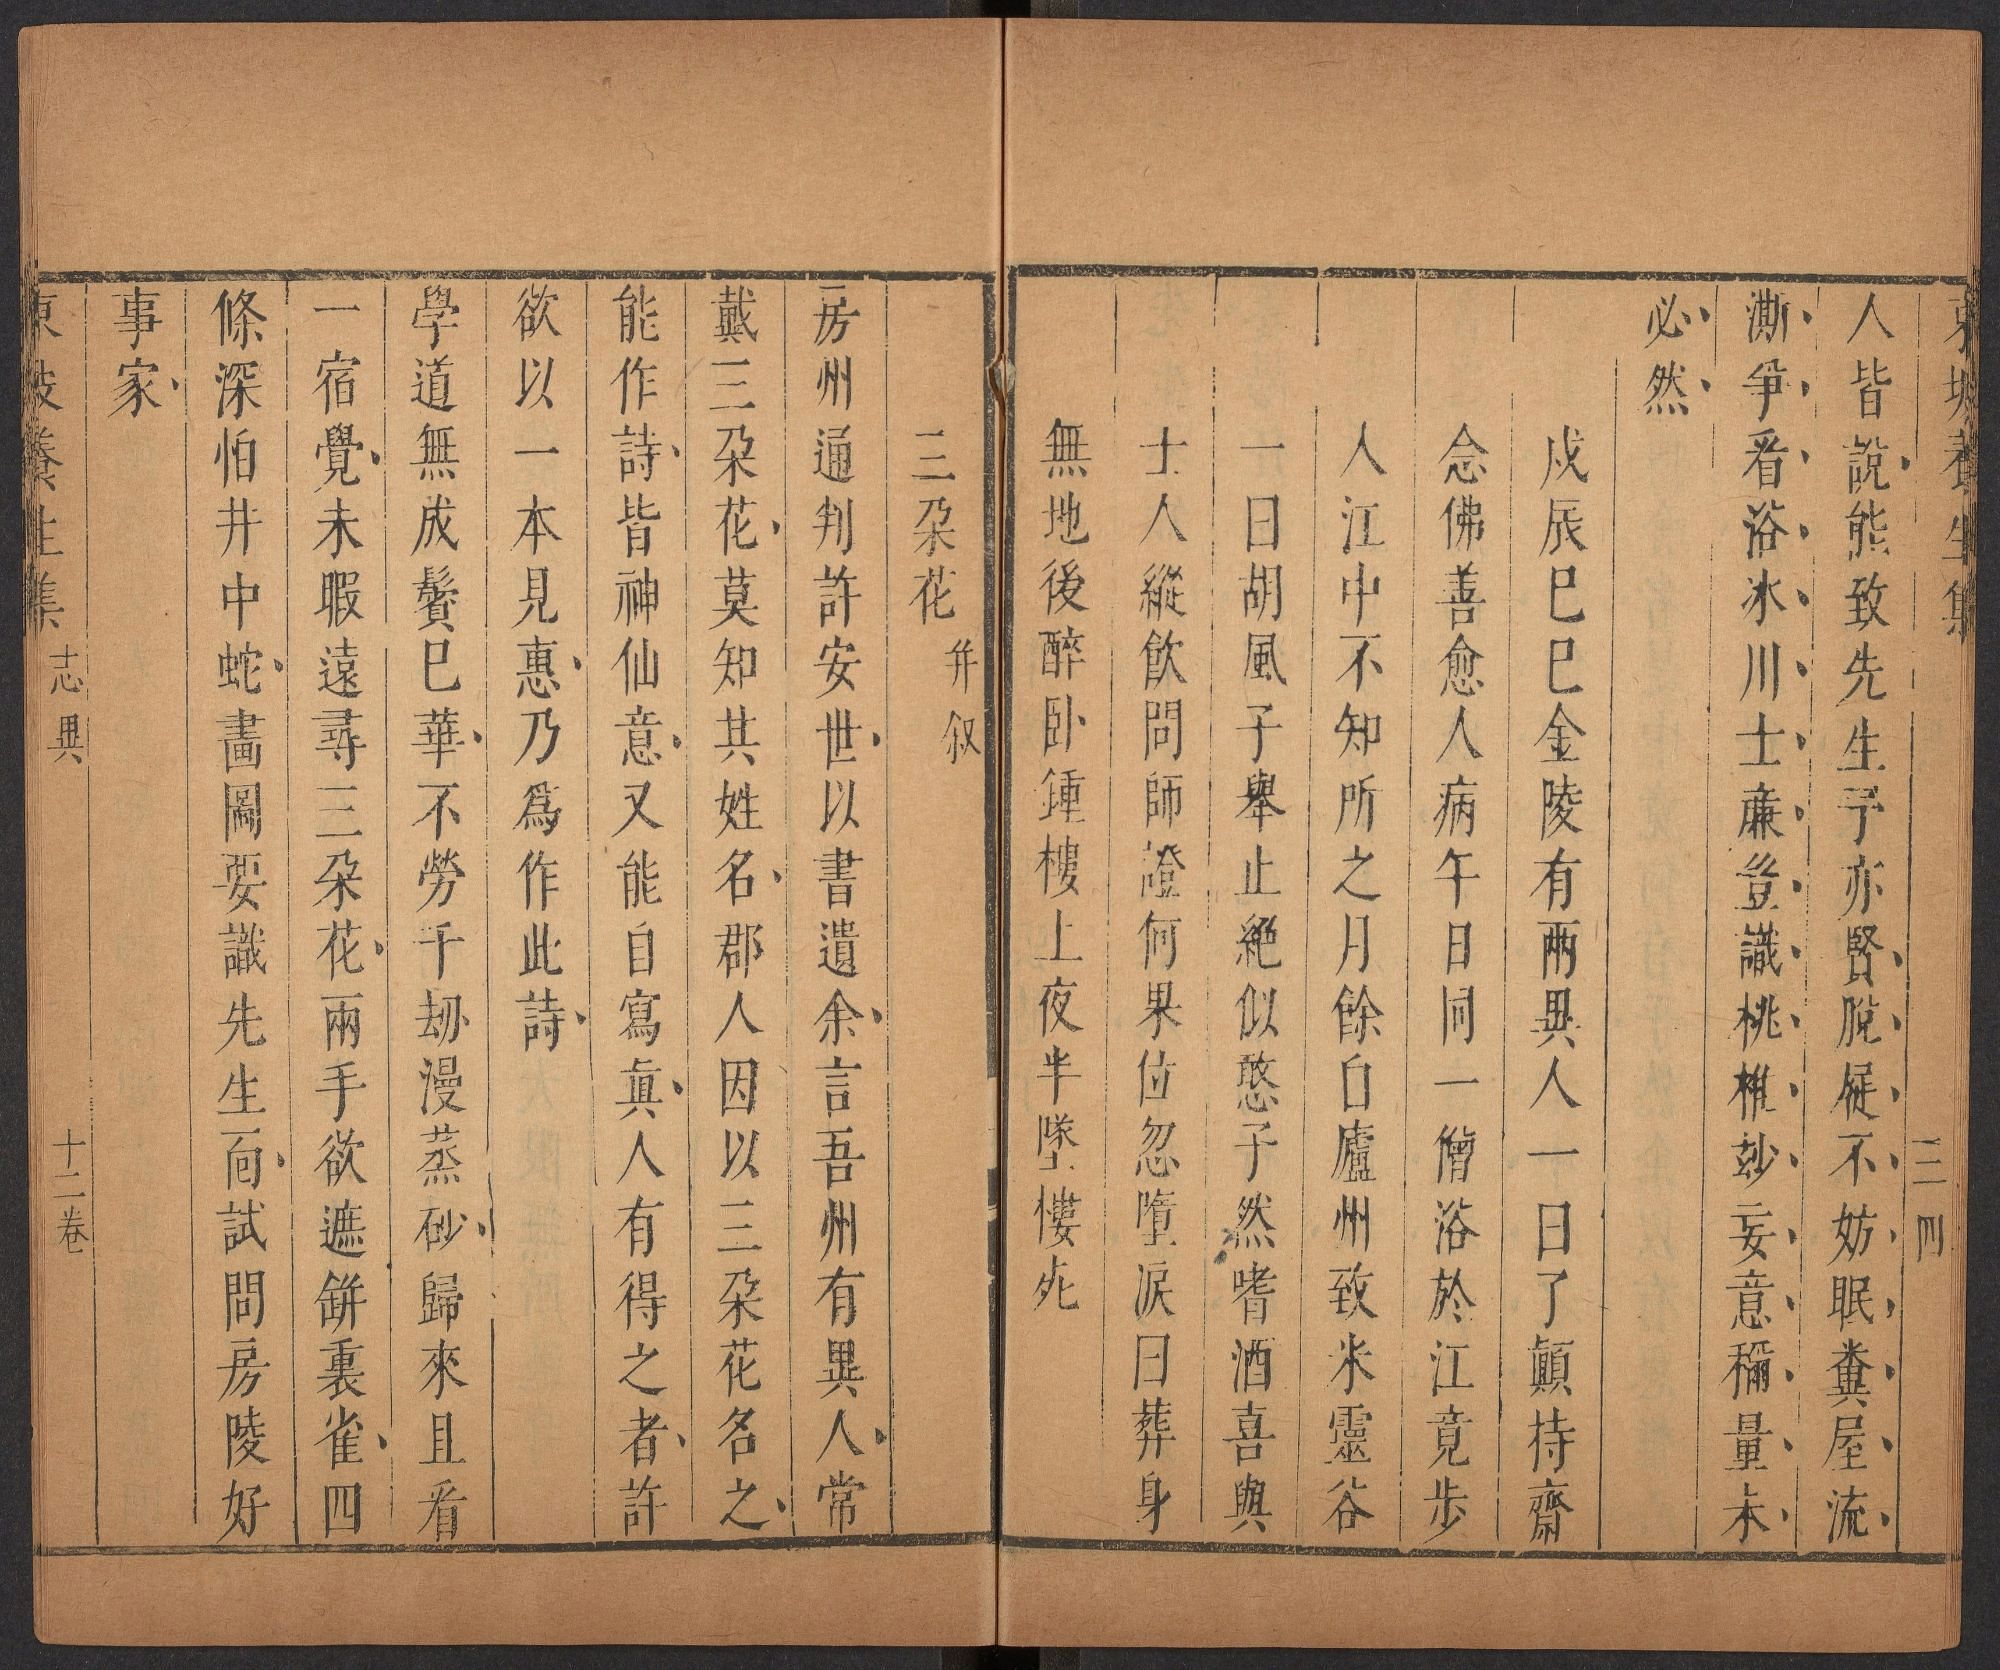 東坡養生集
三四
人皆說熊致先生予亦賢脫屣不妨眠糞屋流
澌爭看浴冰川士廉豈識桃椎玅妄意稱量未
必然
戊辰巳巳金陵有兩異人一曰了顛持齋
念佛善愈人病午日同一僧浴於江竟步
入江中不知所之月餘自廬州致米靈谷
一曰胡風子舉止絕似憨子然嗜酒喜與
士人縱飲問師證何果位忽墮淚曰葬身
無地後醉卧鍾樓上夜半墜樓死
三朶花
并叙
房州通判許安世以書遺余言吾州有異人常
戴三朶花莫知其姓名郡人因以三朶花名之
能作詩皆神仙意又能自寫眞人有得之者許
欲以一本見惠乃爲作此詩
學道無成鬢巳華不勞千刼漫蒸砂歸來且看
一宿覺未暇遠尋三朶花兩手欲遮缾裏雀四
條深怕井中蛇畵圖要識先生面試問房陵好
事家
東坡養生集
志異
十二卷